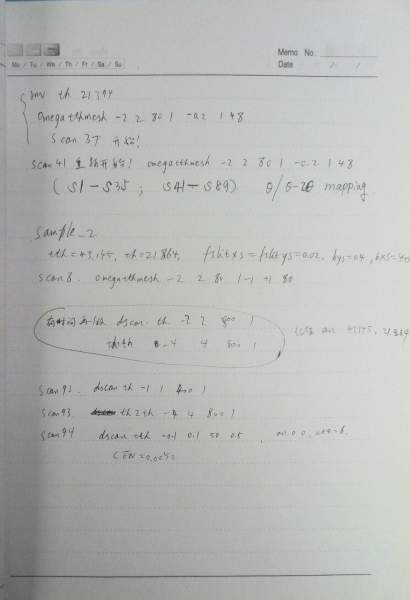 Memo No.
Mo / Tu / We / Th / Fr / Sa / Su
Date / /
mv th 21.394
omegatthmesh -2 2 80 1 -0.2 1 48
Scan 37 开始!
Scan 41 重新开始! omegatthmesh -2 2 80 1 -0.2 1 48
( S1-S35 ; S41-S89) θ/θ-2θ mapping
Sample_2
tth=43.145, th=21.864, fslitxs=fslitys=0.02,
Scan 8. omegatthmesh -2 2 80 1 -1 1 80
dscan th -2 2 800 1
-4 4 800 1
Scan 92. dscan th -1 1 400 1
Scan 93 th2th -4 4 800 1
Scan 94 dscan tth -0.1 0.1 50 0.5